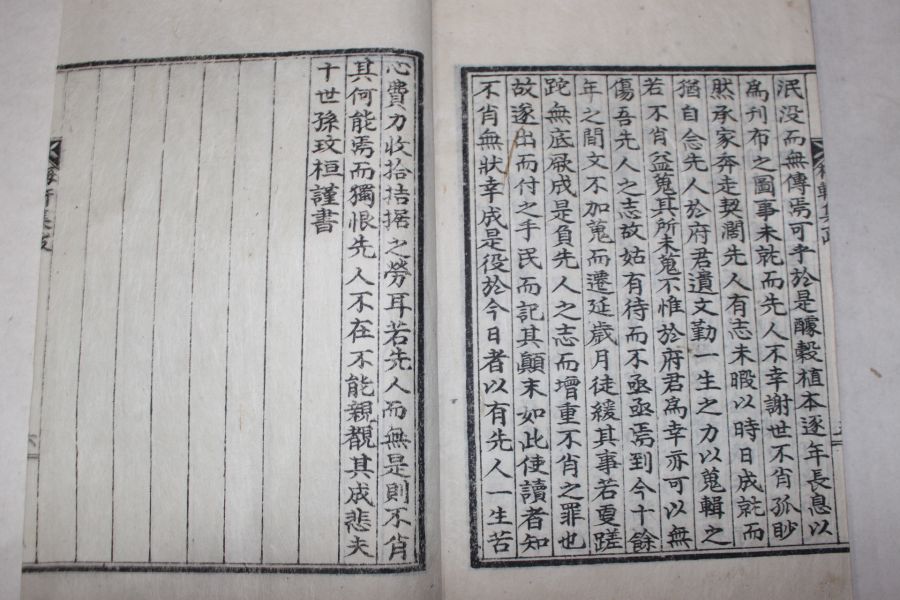 泯没而無傳焉可乎於是醵穀植本逐年長息以
爲刋布之圖事未就而先人不幸謝世不肖孤眇
然承家奔走契濶先人有志未暇以時日成就而
猶自念先人於府君遺文勤一生之力以蒐輯之
若不肖益蒐其所未蒐不惟於府君爲幸亦可以無
傷吾先人之志故姑有待而不亟亟焉到今十餘
年之間文不加蒐而遷延歲月徒緩其事若夏蹉
跎無底厥成是負先人之志而增重不肖之罪也
故遂出而付之手民而記其顛末如此使讀者知
不肖無狀幸成是役於今日者以有先人一生苦
心費力收拾拮据之勞耳若先人而無是則不肖
其何能焉而獨恨先人不在不能親覩其成悲夫
十世孫玟桓謹書